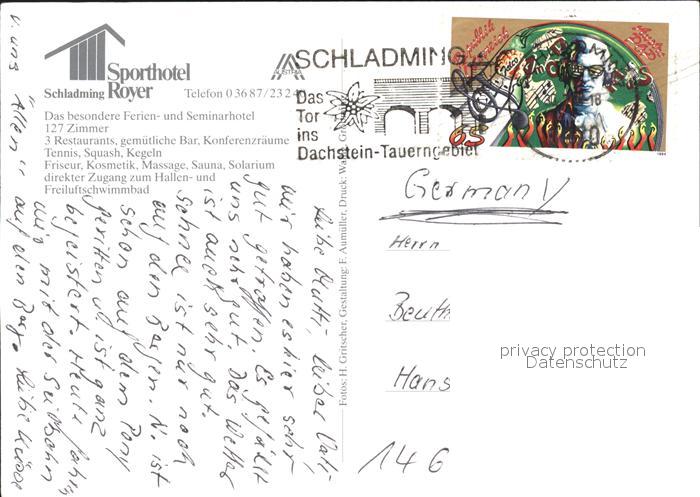 Sporthotel
Schladming Royer
Telefon 03687/232
Das besondere Ferien- und Seminarhotel
127 Zimmer
3 Restaurants, gemütliche Bar, Konferenzräume
Tennis, Squash, Kegeln
Friseur, Kosmetik, Massage, Sauna, Solarium
direkter Zugang zum Hallen- und
Freiluftschwimmbad
SCHLADMING
Das
Tor
ins
Dachstein-Tauerngebiet
6S
18
1994
Fotos: H. Gritscher, Gestaltung: F. Aumüller, Druck:
Germany
Herrn
Beuth
Hans
146
privacy protection
Datenschutz
Liebe Mutti, lieber Vati,
wir haben es hier sehr
gut getroffen. Es gefällt
uns sehr gut. Das Wetter
ist auch sehr gut.
Schnee ist nur noch
auf den Bergen. N. ist
schon auf dem Pony
geritten u. ist ganz
begeistert. Heute fahren
wir mit der Seilbahn
auf den Berg. Liebe Küsse
v. uns "Allen"